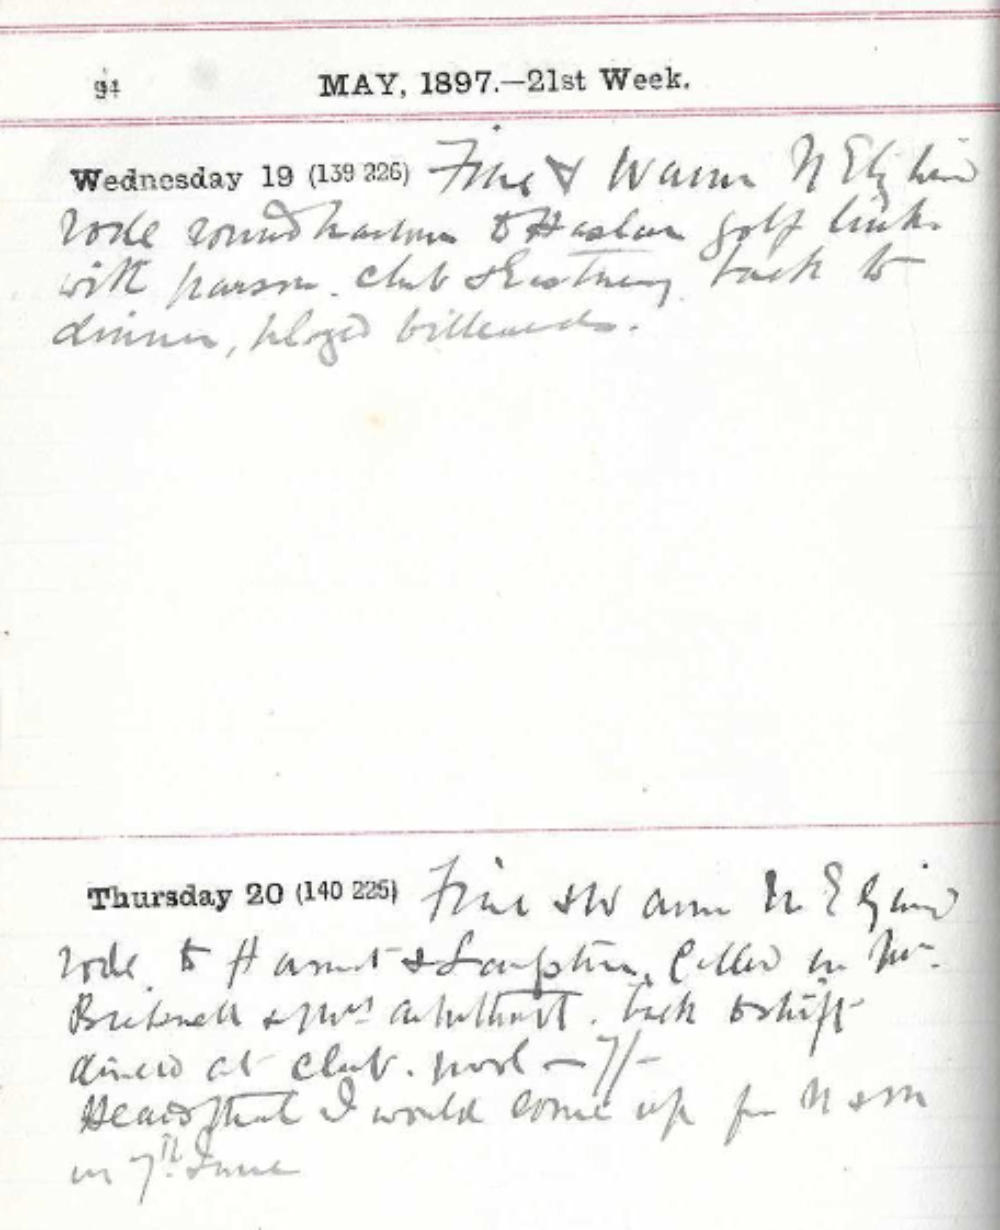 94
MAY, 1897.—21st Week.
Wednesday 19 (139 226) Fine & Warm N Ely wind
rode round harbour to Haslar golf links
with parson. club & Eastney. back to
dinner, played billiards.
Thursday 20 (140 225) Fine & Warm N E ly wind
rode to & Called on Mr.
& Mrs back to shift
dined at club. pool – 7/-
Heard that I would come up for
on 7th June